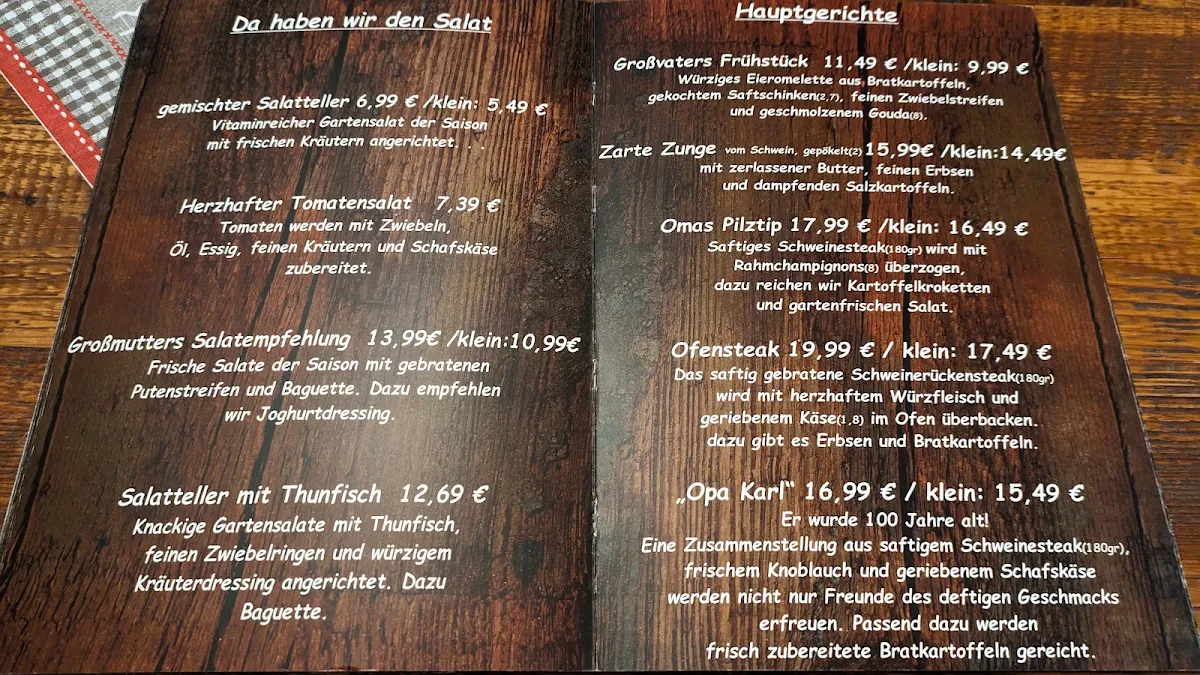 Da haben wir den Salat
gemischter Salatteller 6,99 € /klein: 5,49 €
Vitaminreicher Gartensalat der Saison
mit frischen Kräutern angerichtet. . .
Herzhafter Tomatensalat 7,39 €
Tomaten werden mit Zwiebeln,
Öl, Essig, feinen Kräutern und Schafskäse
zubereitet.
Großmutters Salatempfehlung 13,99€ /klein:10,99€
Frische Salate der Saison mit gebratenen
Putenstreifen und Baguette. Dazu empfehlen
wir Joghurtdressing.
Salatteller mit Thunfisch 12,69 €
Knackige Gartensalate mit Thunfisch,
feinen Zwiebelringen und würzigem
Kräuterdressing angerichtet. Dazu
Baguette.
Hauptgerichte
Großvaters Frühstück 11,49 € /klein: 9,99 €
Würziges Eieromelette aus Bratkartoffeln,
gekochtem Saftschinken(2,7), feinen Zwiebelstreifen
und geschmolzenem Gouda(8).
Zarte Zunge vom Schwein, gepökelt(2) 15,99€ /klein:14,49€
mit zerlassener Butter, feinen Erbsen
und dampfenden Salzkartoffeln.
Omas Pilztip 17,99 € /klein: 16,49 €
Saftiges Schweinesteak(180gr) wird mit
Rahmchampignons(8) überzogen,
dazu reichen wir Kartoffelkroketten
und gartenfrischen Salat.
Ofensteak 19,99 € / klein: 17,49 €
Das saftig gebratene Schweinerückensteak(180gr)
wird mit herzhaftem Würzfleisch und
geriebenem Käse(1,8) im Ofen überbacken.
dazu gibt es Erbsen und Bratkartoffeln.
„Opa Karl" 16,99 € / klein: 15,49 €
Er wurde 100 Jahre alt!
Eine Zusammenstellung aus saftigem Schweinesteak(180gr),
frischem Knoblauch und geriebenem Schafskäse
werden nicht nur Freunde des deftigen Geschmacks
erfreuen. Passend dazu werden
frisch zubereitete Bratkartoffeln gereicht.